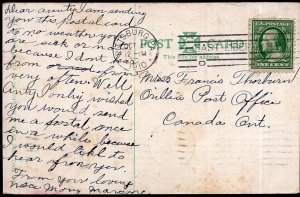 dear aunty I am sending
you this postal card
to no weather you
are sick or not
because I dont
hear from
very often. Well
Anty I only wished
you would send
me a postal once
in a while because
I would like to
hear from you.
From your loving
neice Mary
POST
Miss Francis Thorburn
Orillia Post Office
Canada Ont.